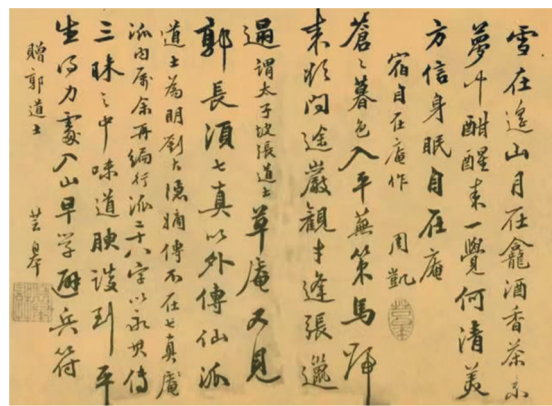 雪在遙山月在龕酒香茶
夢中酣醒來一覺何清美
方信身眠自在庵
宿自在庵作 周凱
蒼〻暮色入平蕪策馬歸
來欲問途巖觀才逢張邋
遢謂太子坡張道士草庵又見
郭長須七真以外傳仙派
道士為明劉大德嫡傳不在七真庵
派內屬余再編行派二十八字以永其傳
三昧之中味道腴談到平
生得力處入山早學避兵符
贈郭道士 芸皋